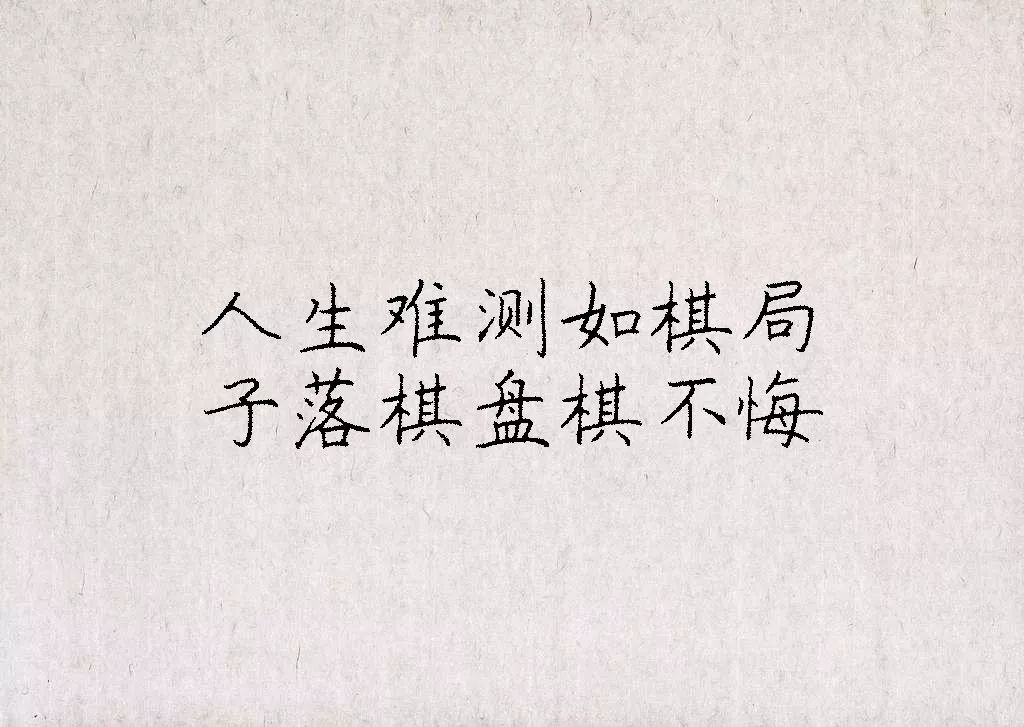 人生难测如棋局
子落棋盘棋不悔